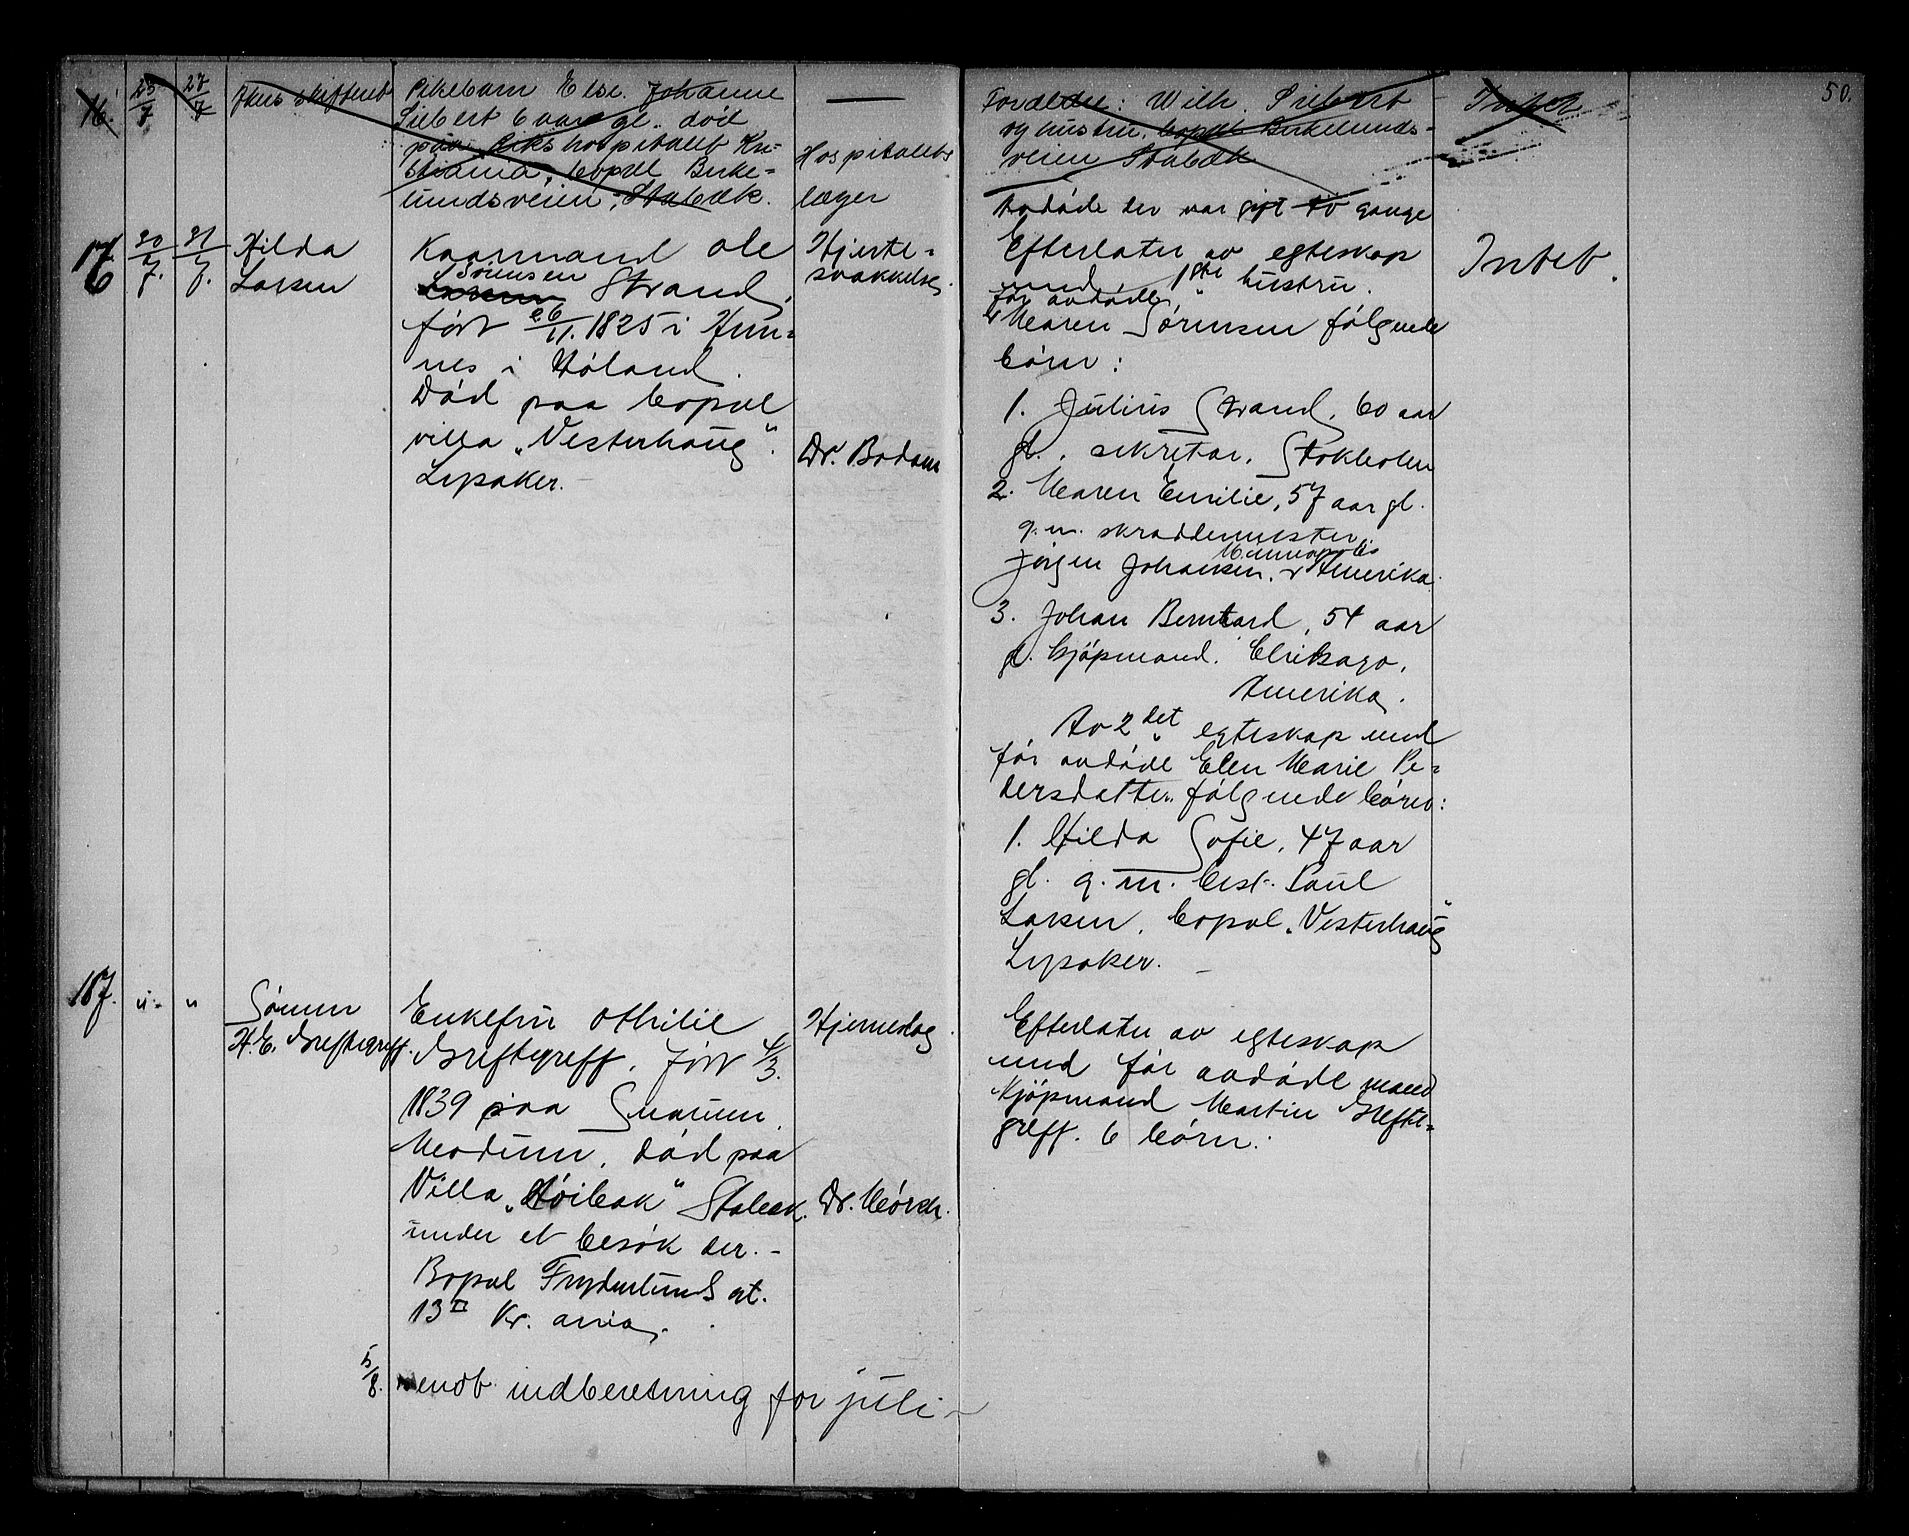 50.
16. 25/7 27/7 Akers skifteret
Pikebarn Else Johanne
Siebert 6 aar gl. död
paa Rikshospitalet Kri-
stiania, bopæl Birke-
lundsveien, Stabæk.
—
Hospitalets
læger
Forældre: Wilh. Siebert
og hustru, bopæl Birkelunds-
veien Stabæk
Intet
176 30/7. 31/7. Hilda
Larsen
Kaarmand Ole
Sörensen
Larsen Strand,
født 26/11. 1825 i Hun-
nes i Höland.
Död paa bopæl
villa „Vesterhaug".
Lysaker.
Hjerte-
svækkelse.
Dr. Bodom
Avdöde der var gift to gange
Efterlater av egteskap
med 1ste hustru.
før avdøde
Maren Sörensen følgende
børn:
1. Julius Strand, 60 aar
gl., sekretær, Stokholm
2. Maren Emilie, 57 aar gl.
g. m. skræddermester
Minneapolis
Jörgen Johansen, Amerika.
3. Johan Bernhard, 54 aar
gl. kjöpmand. Chikago,
Amerika.
Av 2det egteskap med
før avdøde Elen Marie Pe-
dersdatter følgende børn:
1. Hilda Sofie, 47 aar
gl. g. m. best. Paul
Larsen, bopæl „Vesterhaug"
Lysaker. –
Intet.
187. "- " Sönnen
H. E. Greftegreff.
Enkefru Othilie
Greftegreff. født 4/3.
1839 paa Snarum,
Modum, død paa
Villa „Höibak" Stabæk.
under et besök der. -
Bopæl Frydenlunds gt.
13 II Kr. ania.
Hjerneslag.
Dr. Mörch.
Efterlater av egteskap
med før avdøde mand
Kjöpmand Martin Grefte-
greff. 6 børn.
5/8. sendt indberetning for juli –